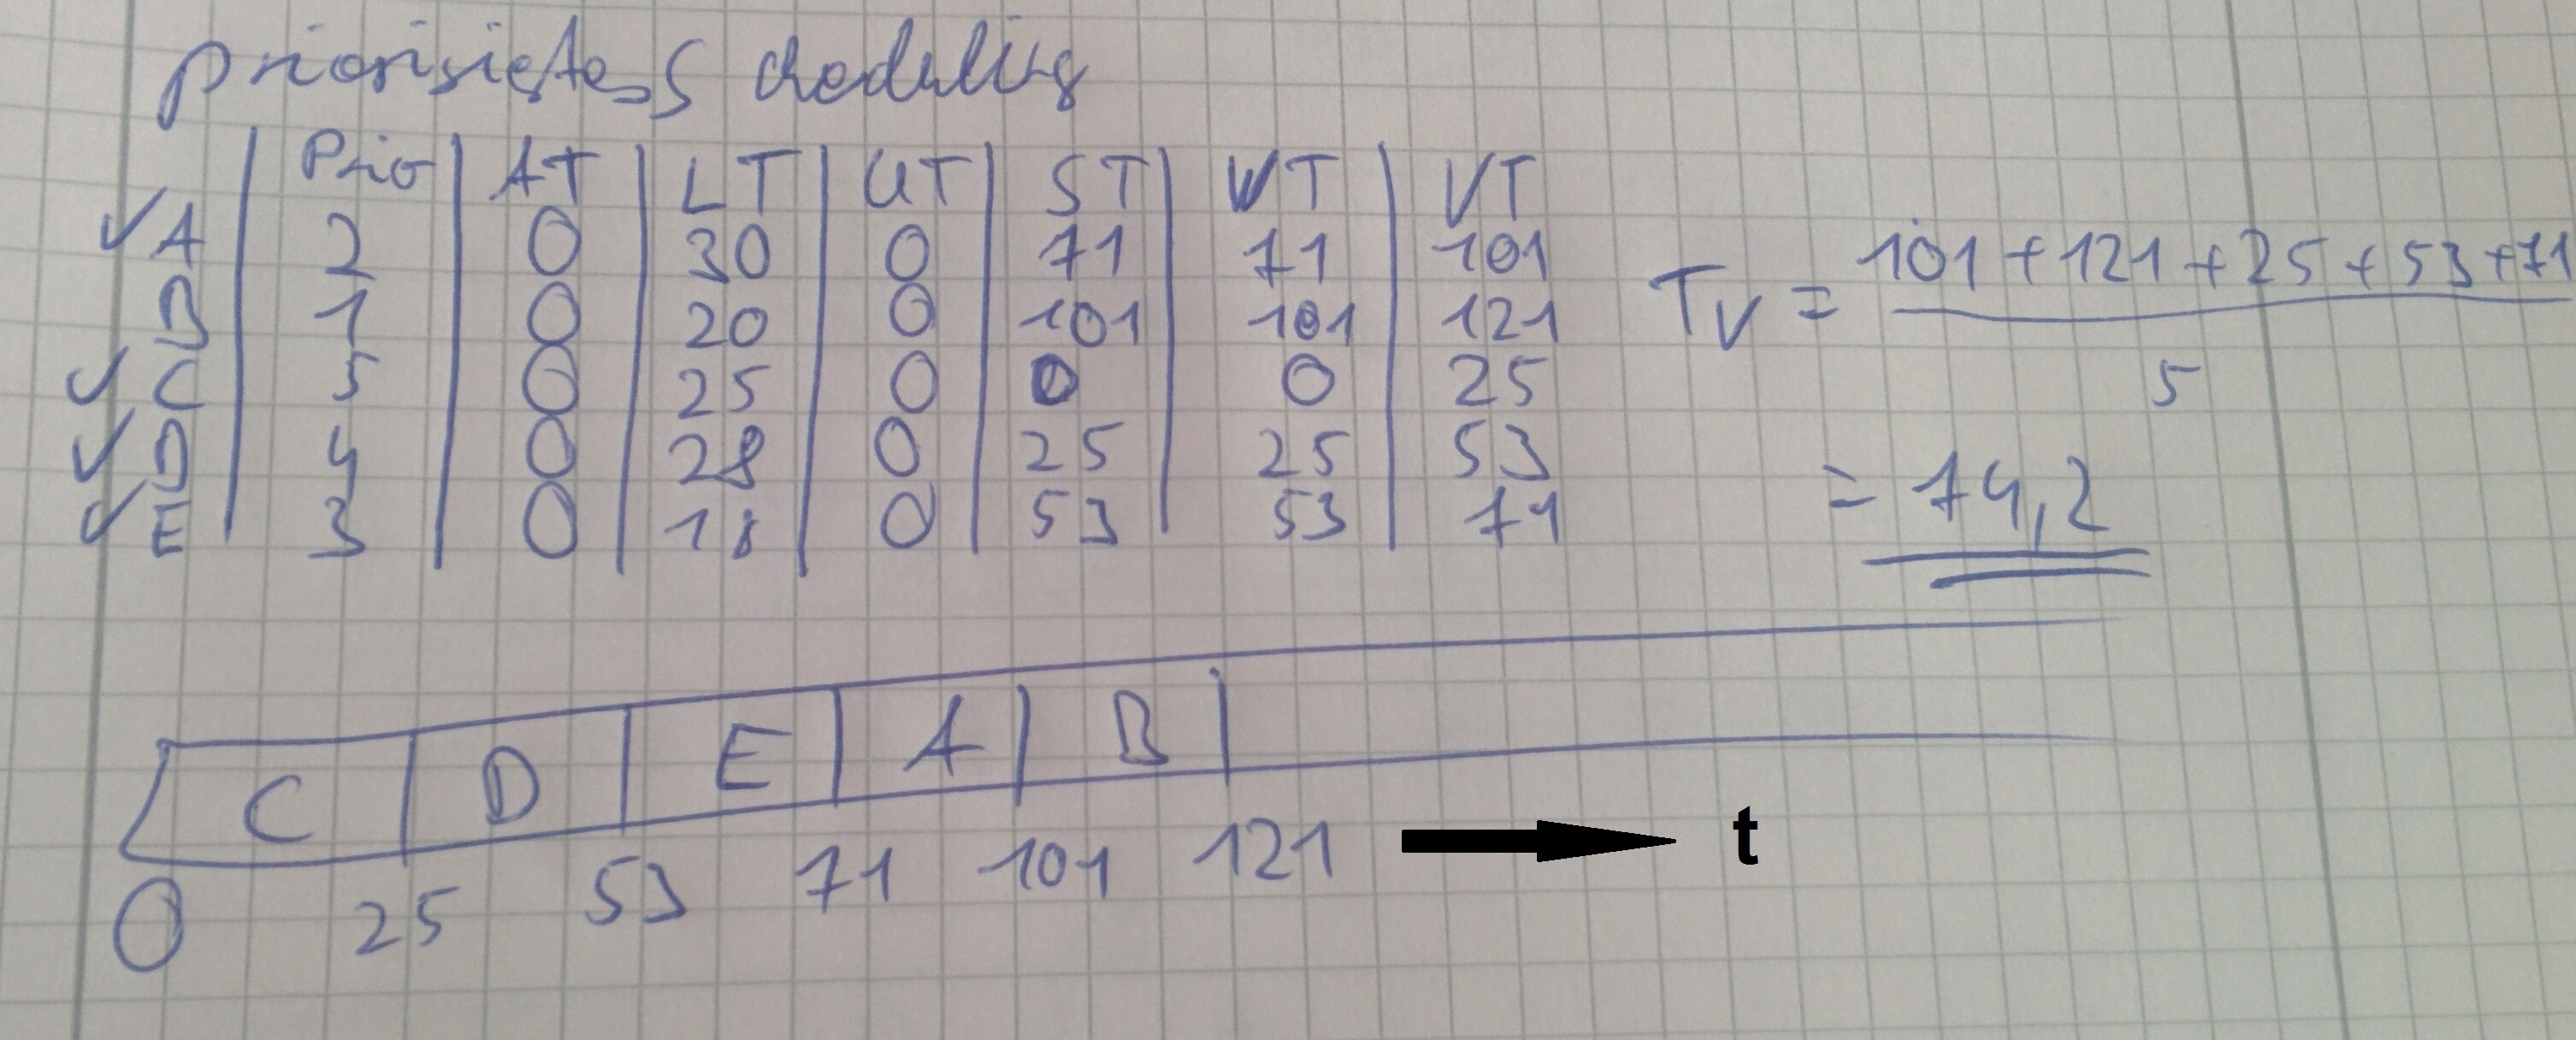 priorisiertes Scheduling
Prio AT LT UT ST WT VT
✓ A 2 0 30 0 71 71 101
B 1 0 20 0 101 101 121
✓ C 5 0 25 0 0 0 25
✓ D 4 0 28 0 25 25 53
✓ E 3 0 18 0 53 53 71
Tv = 101 + 121 + 25 + 53 + 71
5
= 74,2
C D E A B
0 25 53 71 101 121 t